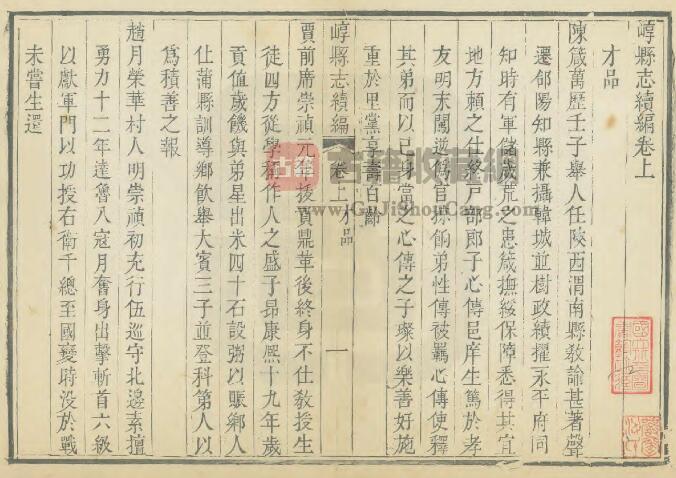 崞縣志續編卷上
才品
陳箴萬歷壬子舉人任陝西渭南縣教諭甚著聲
遷郃陽知縣兼攝韓城並樹政績擢永平府同
知時有軍儲歲荒之患箴撫綏保障悉得其宜
地方頼之仕終戶部郎子心傳邑庠生篤於孝
友明末闖逆僞官掠餉弟性傳被羈心傳使釋
其弟而以已身當之心傳之子璨以樂善好施
重於里黨享壽百齡
崞縣志續編 卷上才品 一
賈前席崇禎元年拔貢鼎革後終身不仕教授生
徒四方從學稱作人之盛子昻康熙十九年歲
貢值歲饑與弟星出米四十石設粥以賑鄉人
仕蒲縣訓導鄉飲舉大賓三子並登科第人以
爲積善之報
趙月榮華村人明崇禎初充行伍巡守北邊素擅
勇力十二年達魯八寇月奮身出擊斬首六級
以獻軍門以功授右衛千總至國變時没於戰
未嘗生還
古籍收藏網
www.GuJiShouCang.com